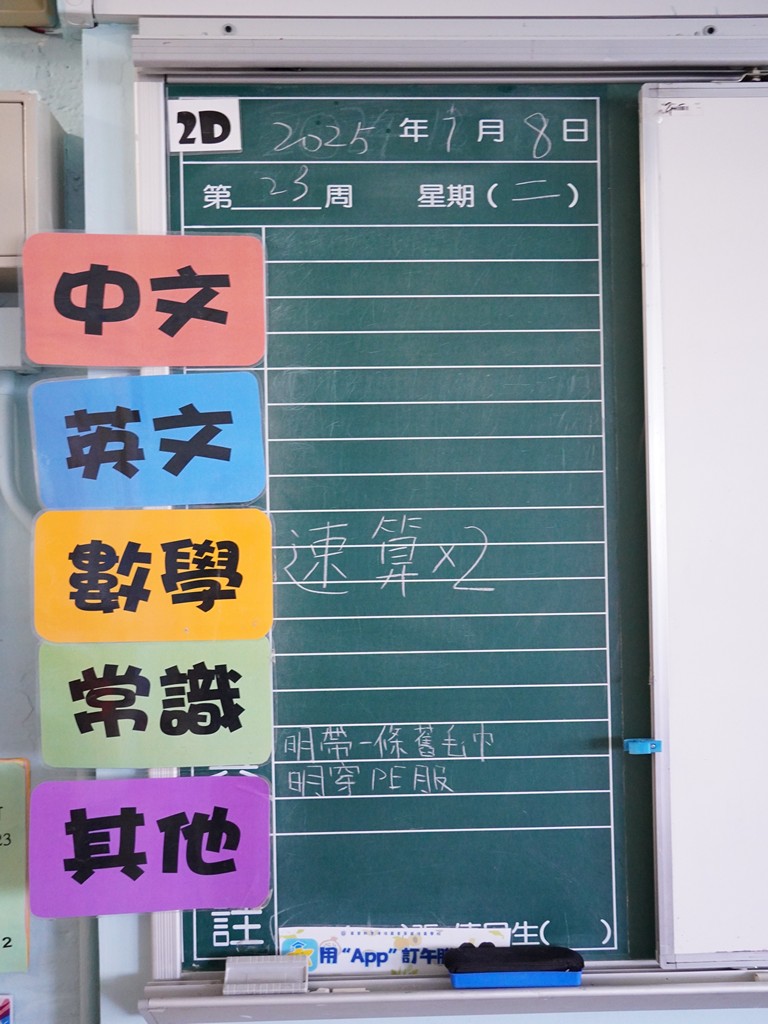 2D
2025 年 7 月 8 日
第 23 周 星期 (二)
中文
英文
數學 速算×2
常識
明帶一條舊毛巾
明穿PE服
其他
註
生( )
用“App”訂午
23
2